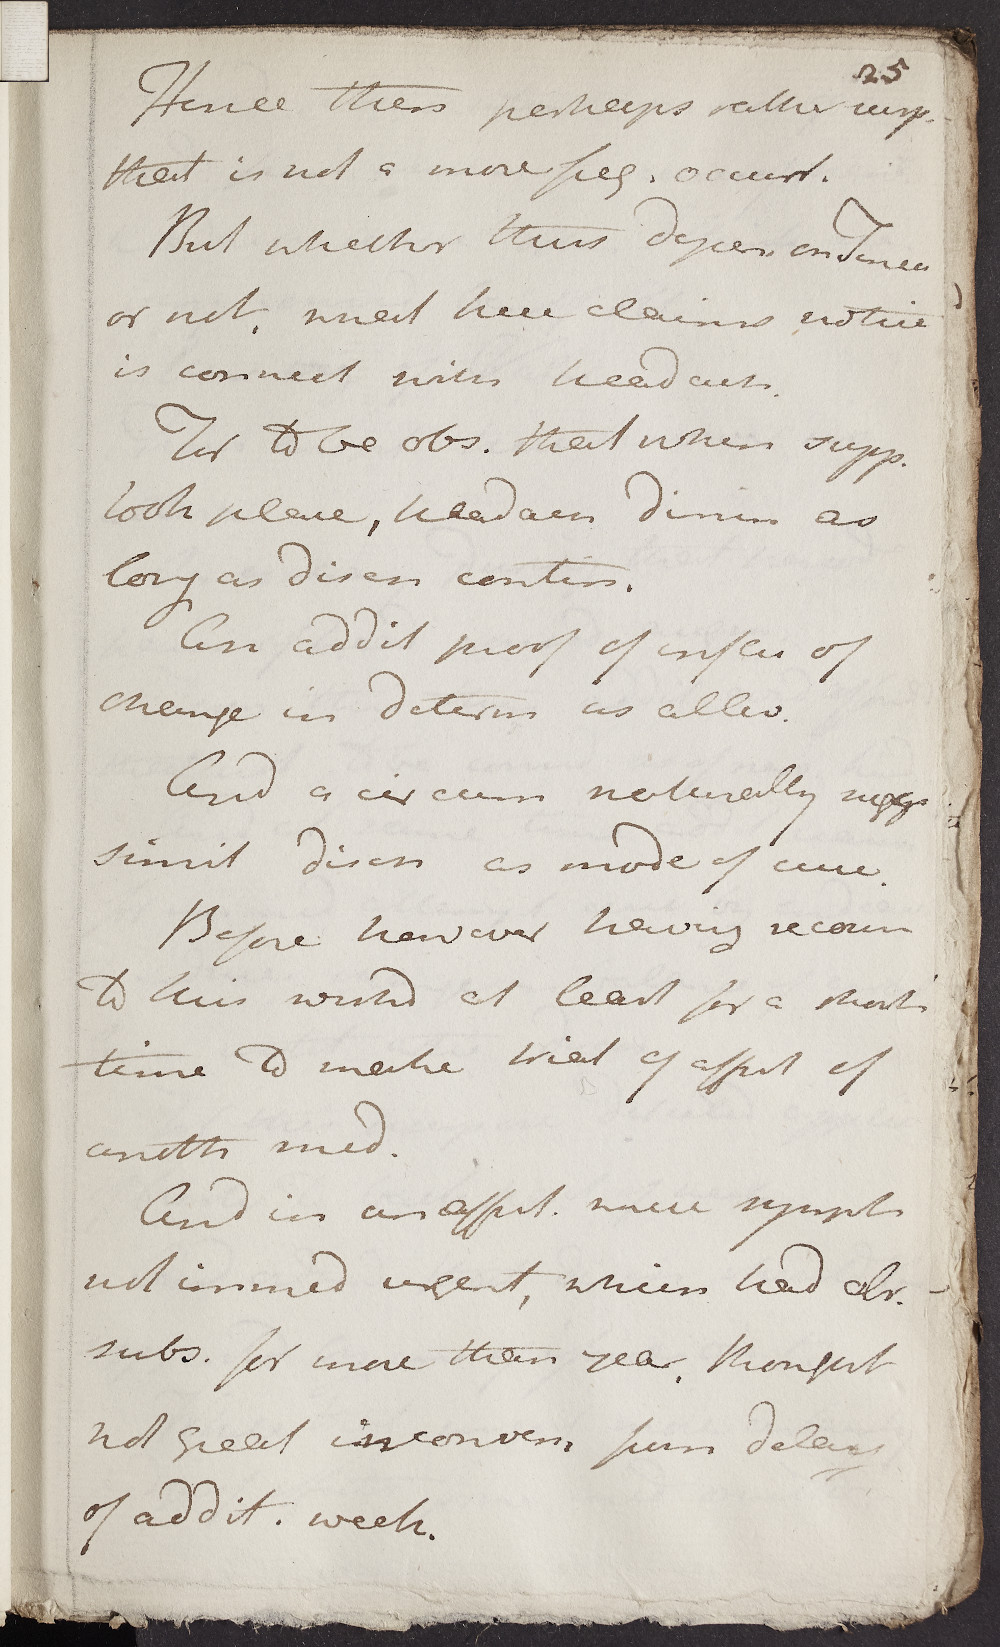 25
Hence then perhaps rather surp.
that is not a more freq. occurr.
But whether thus depen on Tinea
or not, what here claims notice
is connect with headach.
For to be obs. that when supp.
took place, headach dimin as
long as disch contin.
An addit proof of influ of
change in determ as allev.
And a circum naturally sugg
simil disch as mode of cure.
Before however having recour
to this wishd at least for a short
time to make trial of effect of
anoth med.
And in an affect. where sympt
not immed urgent, which had alr.
subs. for more than year, thought
not great inconven from delay
of addit. week.